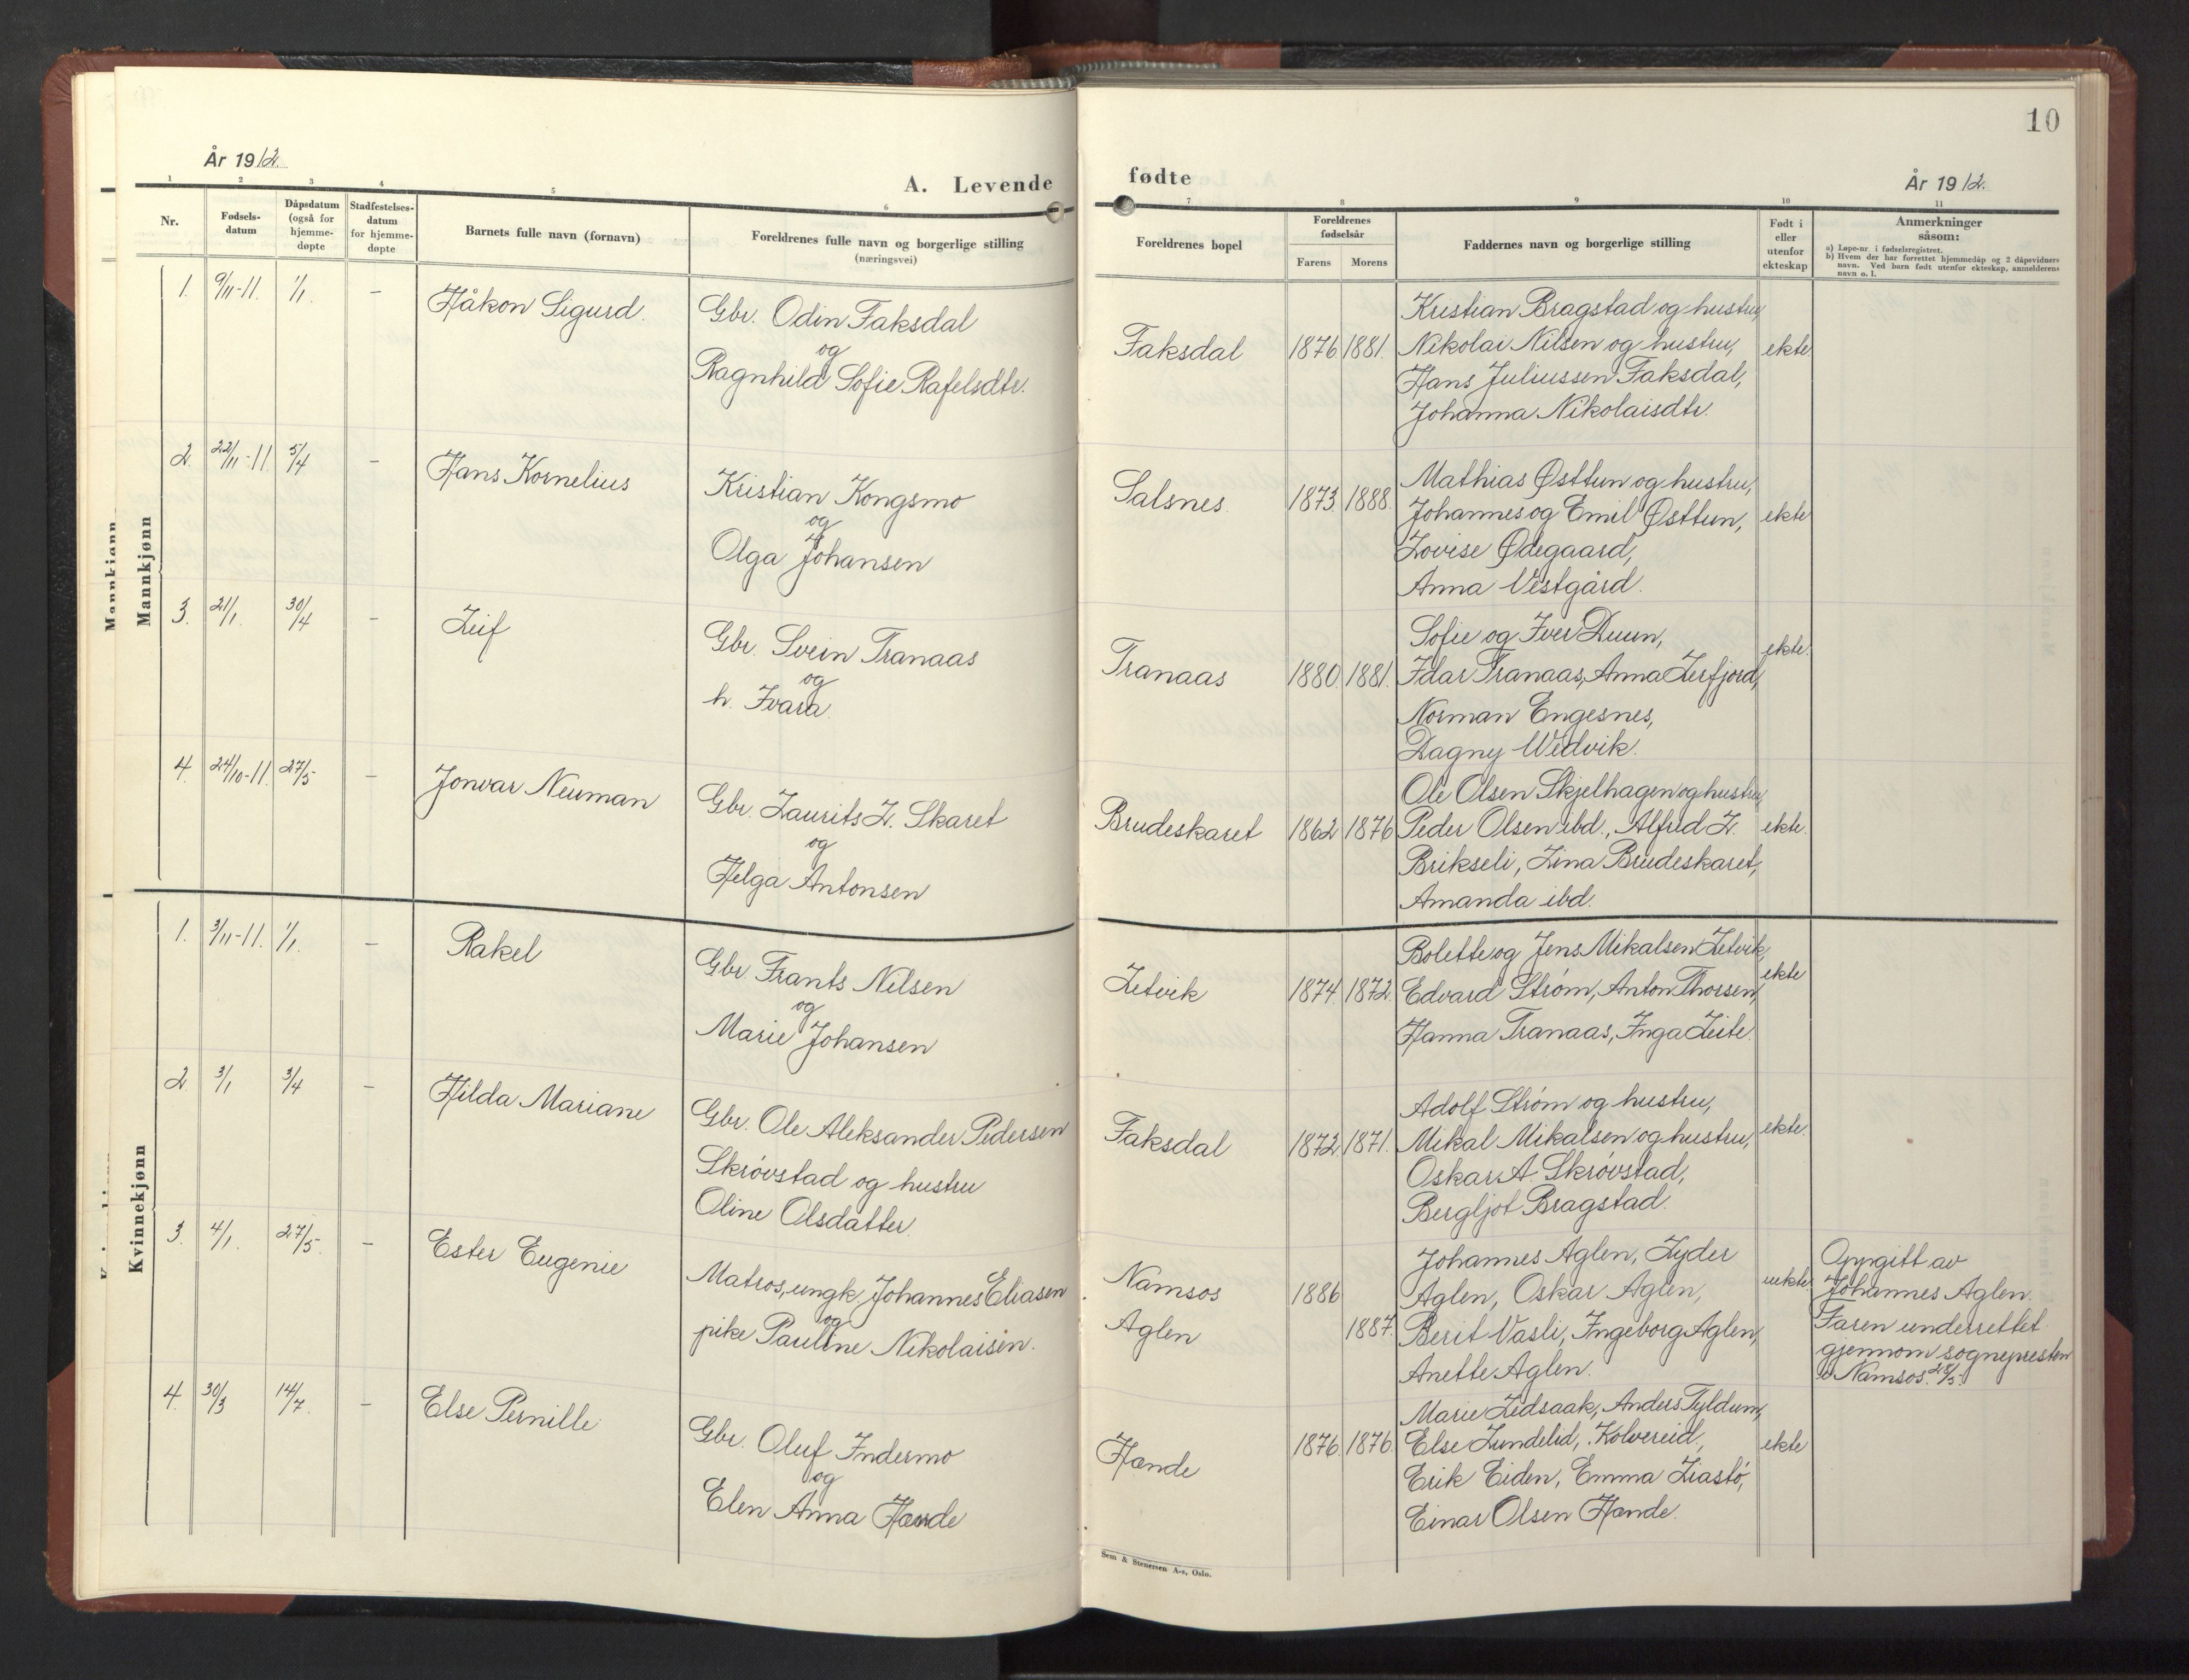 10
År 1912.
A. Levende
fødte
År 1912.
1 2 3 4 5 6 7 8 9 10 11
Nr.
Fødsels-
datum
Dåpsdatum
(også for
hjemme-
døpte
Stadfestelses-
datum
for hjemme-
døpte
Barnets fulle navn (fornavn)
Foreldrenes fulle navn og borgerlige stilling
(næringsvei)
Foreldrenes bopel
Foreldrenes
fødselsår
Farens Morens
Faddernes navn og borgerlige stilling
Født i
eller
utenfor
ekteskap
Anmerkninger
såsom:
a) Løpe-nr. i fødselsregistret.
b) Hvem der har forrettet hjemmedåp og 2 dåpsvidners
navn. Ved barn født utenfor ekteskap, anmelderens
navn o. l.
Mannkjønn
Mannkjønn
1. 9/11-11. 1/1. - Håkon Sigurd.
Gbr. Odin Faksdal
og
Ragnhild Sofie Rafelsdtr.
Faksdal 1876 1881.
Kristian Bragstad og hustru,
Nikolai Nilsen og hustru,
Hans Juliussen Faksdal,
Johanna Nikolaisdtr.
ekte.
2. 22/11-11. 5/4 - Hans Kornelius
Kristian Kongsmo
og
Olga Johansen
Salsnes. 1873. 1888.
Mathias Østtun og hustru,
Johannes og Emil Østtun,
Lovise Ødegaard,
Anna Vestgård.
ekte
3. 21/1. 30/4 - Leif
Gbr. Svein Tranaas
og
h. Ivara.
Tranaas 1880. 1881.
Sofie og Iver Duun,
Idar Tranaas, Anna Lerfjord,
Norman Engesnes,
Dagny Wedvik.
ekte.
4. 24/10-11. 27/5 - Jonvar Neuman
Gbr. Laurits L. Skaret
og
Helga Antonsen
Brudeskaret 1862 1876
Ole Olsen Skjelhagen og hustru,
Peder Olsen ibd., Alfred L.
Brikseli, Lina Brudeskaret,
Amanda ibd.
ekte.
Kvinnekjønn
1. 3/11-11. 1/1. - Rakel
Gbr. Frants Nilsen
og
Marie Johansen
Letvik 1874. 1872.
Bolette og Jens Mikalsen Letvik,
Edvard Strøm, Anton Thorsen,
Hanna Tranaas, Inga Leite.
ekte
2 3/1 3/4 - Hilda Mariane
Gbr. Ole Aleksander Pedersen
Skrøvstad og hustru
Oline Olsdatter.
Faksdal 1872. 1871.
Adolf Strøm og hustru,
Mikal Mikalsen og hustru,
Oskar A. Skrøvstad,
Bergljot Bragstad.
ekte.
3. 4/1. 27/5. - Ester Eugenie
Matros, ungk. Johannes Eliasen
og
pike Pauline Nikolaisen.
Namsos 1886
Aglen 1887.
Johannes Aglen, Lyder
Aglen, Oskar Aglen,
Berit Vasli, Ingeborg Aglen,
Anette Aglen.
uekte.
Oppgitt av
Johannes Aglen.
Faren underrettet
gjennom sognepresten
i Namsos. 28/5.
4. 30/3 14/7. - Else Pernille
Gbr. Oluf Indermo
og
Elen Anna Hande
Hande 1876. 1876.
Marie Ledsaak, Anders Tyldum,
Else Lundelid, Kolvereid,
Erik Eiden, Emma Liastø,
Einar Olsen Hande.
ekte
Sem & Stenersen A-s, Oslo.